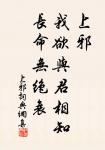 上邪
我欲與君相知
長命無絕衰
上邪詞典網集